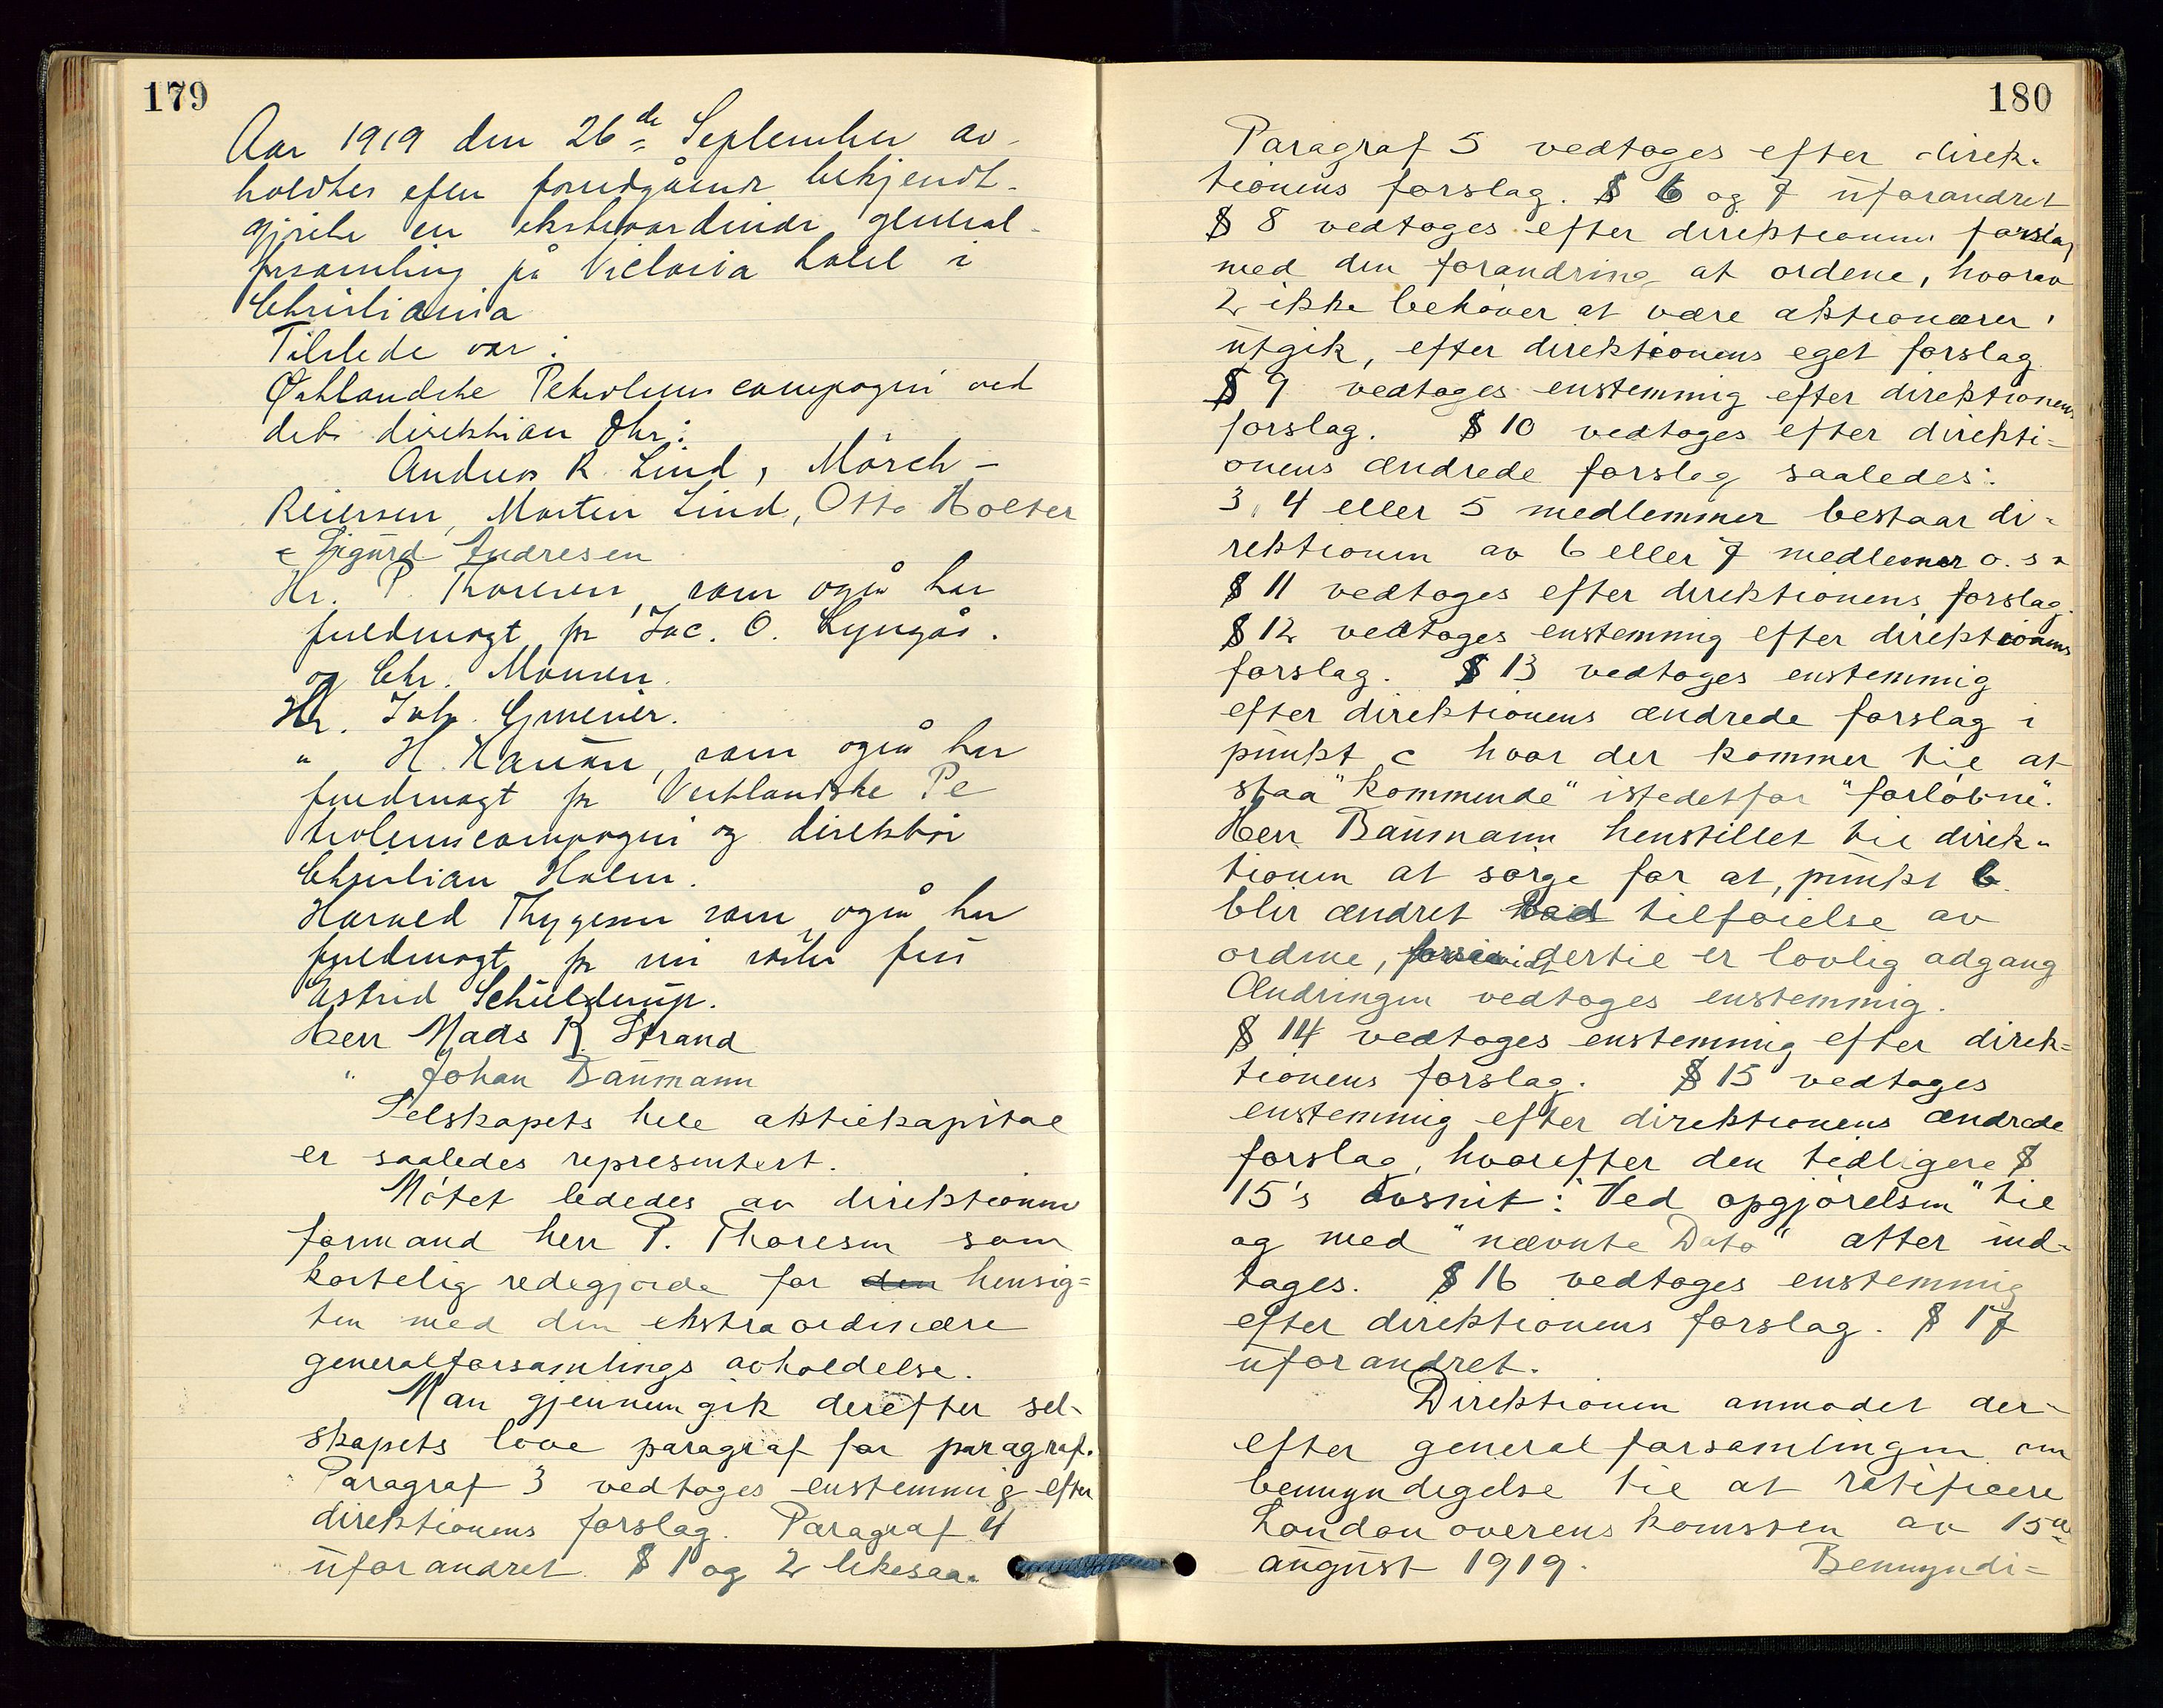 179
Aar 1919 den 26de September av-
holdtes efter forutgående bekjendt-
gjörelse en ekstraordinær general-
forsamling på Victoria hotel i
Christiania
Tilstede var:
Östlandske Petroleumscompagni ved
dets direktion Dhr:
Anders R Lind, Mörch-
Reiersen, Morten Lind, Otto Holter
& Sigurd Andresen
Hr. P. Thoresen, som også har
fuldmagt for Jac. O. Lyngås.
og Chr. Monsen.
Hr. Joh. Gmeiner.
" H. Hanson, som også har
fuldmagt for Vestlandske Pe
troleumscompagni og direktör
Christian Holm.
Harald Thygesen som også har
fuldmagt for sin söster fru
Astrid Schüldrup.
Herr Mads R. Strand
" Johan Baumann
Selskapets hele aktiekapital
er saaledes representert.
Mötet lededes av direktionens
formand herr P. Thoresen som
kortelig redegjorde for den hensig=
ten med den ekstraordinære
generalforsamlings avholdelse.
Man gjennemgik derefter sel-
skapets love paragraf for paragraf.
Paragraf 3 vedtoges enstemmig efter
direktionens forslag. Paragraf 4
uforandret § 1 og 2 likesaa.
180
Paragraf 5 vedtoges efter direk-
tionens forslag. § 6 og 7 uforandret
§ 8 vedtoges efter direktionens forslag
med den forandring at ordene, hvorav
2 ikke behöver at være aktionærer'
utgik, efter direktionens eget forslag
§ 9 vedtoges enstemmig efter direktionens
forslag. § 10 vedtoges efter direkti=
onens ændrede forslag saaledes:
3, 4 eller 5 medlemmer bestaar di-
rektionen av 6 eller 7 medlemer o.s.v
§ 11 vedtoges efter direktionens forslag.
§ 12 vedtoges enstemmig efter direktionens
forslag. § 13 vedtoges enstemmig
efter direktionens ændrede forslag i
punkt c hvor der kommer til at
staa "kommende" istedetfor "forløbne".
Herr Baumann henstillet til direk-
tionen at sörge for at, punkt b.
blir ændret ved tilföielse av
ordene, forsåvidt dertil er lovlig adgang
Ændringen vedtoges enstemmig.
§ 14 vedtoges enstemmig efter direk=
tionens forslag. § 15 vedtoges
enstemmig efter direktionens ændrede
forslag, hvorefter den tidligere §
15's avsnit: "Ved opgjörelsen" til
og med "nævnte Dato" atter ind-
tages. § 16 vedtoges enstemmig
efter direktionens forslag. § 17
uforandret.
Direktionen anmodet der-
efter generalforsamlingen om
bemyndigelse til at ratificere
Londonoverenskomsten av 15de
august 1919. Bemyndi=